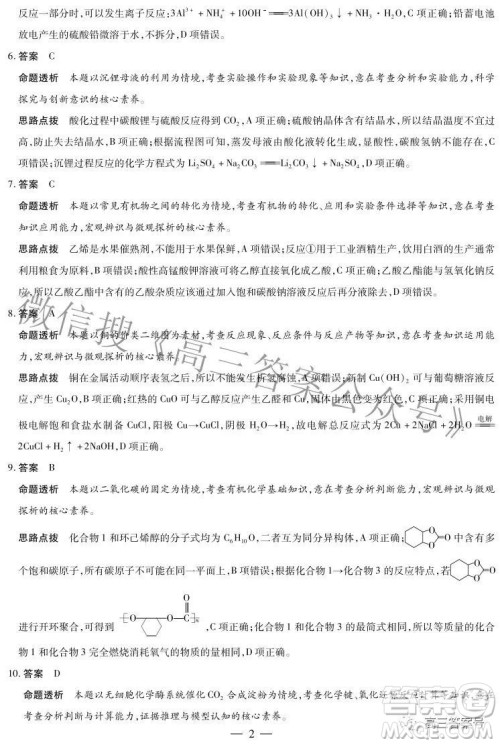 反应一部分时,可以发生离子反应:3Al³⁺+NH₄⁺+10OH⁻══3Al(OH)₃↓+NH₃·H₂O,C项正确;铅蓄电池
放电产生的硫酸铅微溶于水,不拆分,D项错误。
6.答案 C
命题透析 本题以沉锂母液的利用为情境,考查实验操作和实验现象等知识,意在考查分析和实验能力,科学
探究与创新意识的核心素养。
思路点拨 酸化过程中碳酸锂与硫酸反应得到CO₂,A项正确;硫酸钠晶体含有结晶水,所以结晶温度不宜过
高,防止失去结晶水,B项正确;根据流程图可知,蒸发母液由酸化液转化生成,显酸性,碳酸氢钠不能存在,C
项错误;沉锂过程反应的化学方程式为Li₂SO₄+Na₂CO₃══Li₂CO₃↓+Na₂SO₄,D项正确。
7.答案 C
命题透析 本题以常见有机物之间的转化为情境,考查有机物的转化、应用和实验条件选择等知识,意在考查
应用能力,宏观辨识与微观探析的核心素养。
思路点拨 乙烯是水果催熟剂,不能用于水果保鲜,A项错误;反应①用于工业酒精生产,饮用白酒的生产通常
利用粮食为原料,B项错误;酸性高锰酸钾溶液可将乙醇直接氧化成乙酸,C项正确;乙酸乙酯能与氢氧化钠反
应,所以乙酸乙酯中含有的乙酸杂质应该通过加入饱和碳酸钠溶液后再分液除去,D项错误。
8.答案 A
命题透析 本题以铜的价类二维图为素材,考查反应现象、反应条件与反应方式等知识,意在考查分析应用能
力,宏观辨识与微观探析的核心素养。
思路点拨 铜在金属活动顺序表氢之后,所以不能发生析氢腐蚀,A项错误;新制Cu(OH)₂可与葡萄糖溶液反
应,产生Cu₂O,B项正确;红热的CuO可与乙醇反应产生乙醛和Cu,固体由黑色变为红色,C项正确;采用铜电
极电解饱和食盐水制备CuCl,阳极Cu→CuCl,阴极H₂O→H₂,故电解总反应式为2Cu+2NaCl+2H₂O 电解══
2CuCl+H₂↑+2NaOH,D项正确。
9.答案 B
命题透析 本题以二氧化碳的固定为情境,考查有机化学基础知识,意在考查分析判断能力,宏观辨识与微观
探析的核心素养。
思路点拨 化合物1和环己烯醇的分子式均为C₆H₁₀O,二者互为同分异构体,A项正确;O O O中含有多
个饱和碳原子,所有碳原子不可能在同一平面上,B项错误;根据化合物1→化合物3的反应特点,若O O O
进行开环聚合,可得到[O O C O]ₙ,C项正确;化合物1和化合物3的最简式相同,所以等质量的化合
物1和化合物3完全燃烧消耗氧气的物质的量相同,D项正确。
10.答案 D
命题透析 本题以无细胞化学酶系统催化CO₂合成淀粉为情境,考查化学键、氧化还原反应等知识,意在
考查分析判断与计算能力,证据推理与模型认知的核心素养。
— 2 —
微信搜《高三答案公众号》
高三答案号